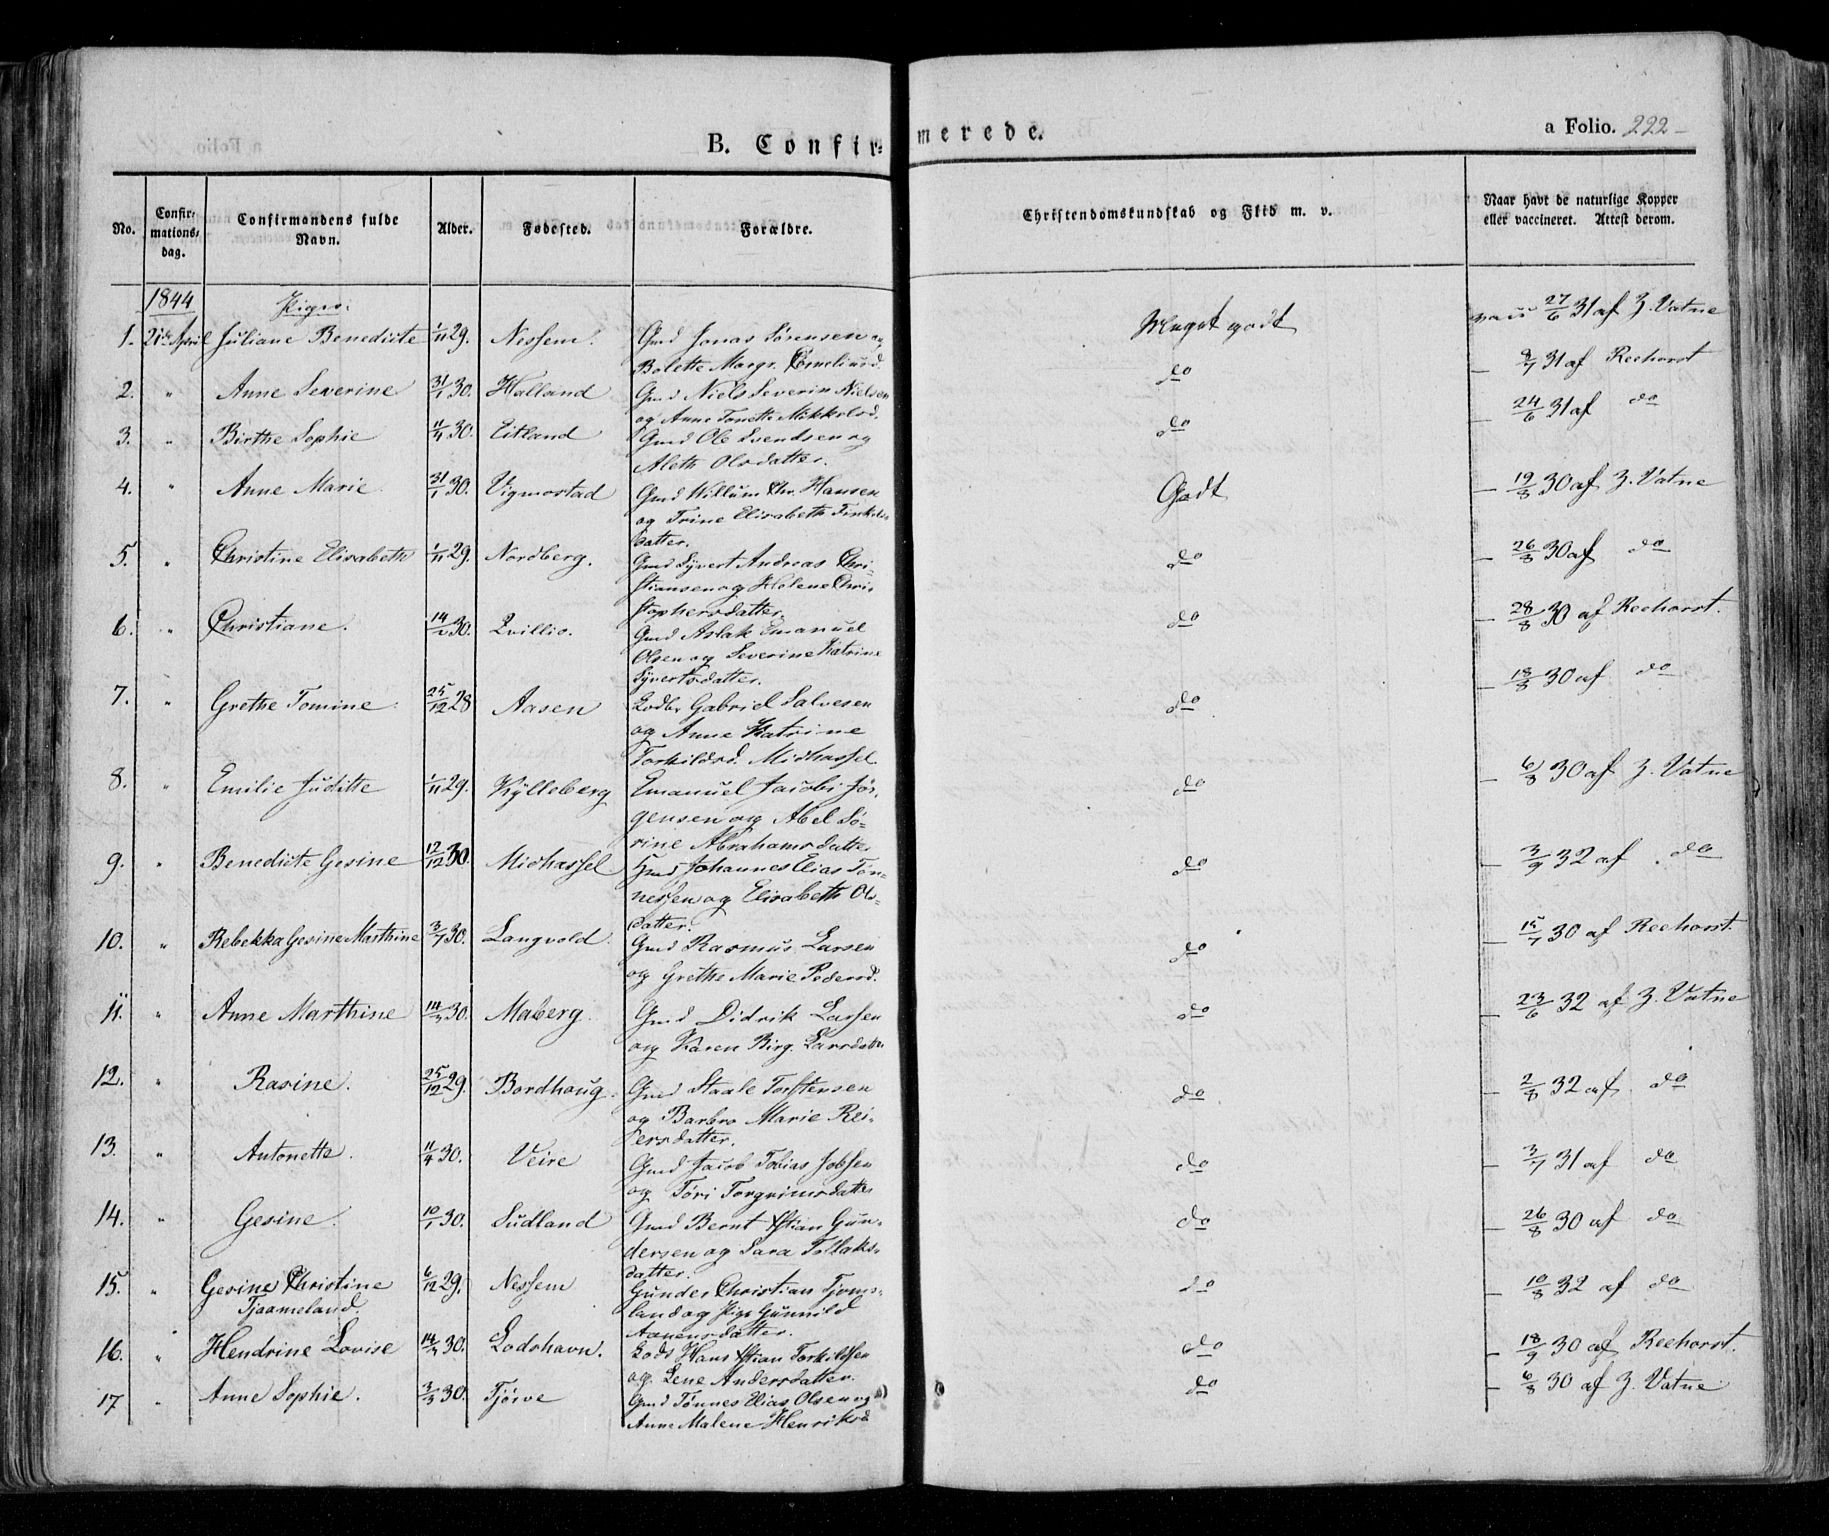 B. Confirmerede.
a Folio. 222
No.
Confirmations-
dag.
Confirmandens fulde
Navn.
Alder.
Fødested.
Forældre.
Christendomskundskab og Flid m. v.
Naar havt de naturlige Kopper
eller vaccineret. Attest derom.
1844 Piger:
1. 21de April Juliane Benedicte 1/11 29. Nessem. Gmd Jonas Sørensen og Meget godt vacc 27/6 31 af Z. Vatne
Bolette Margr. Corneliusd.
2. " Anne Severine 31/1 30. Halland Gmd Niels Severin Nielsen do 2/7 31 af Reehorst
og Anne Tonette Mikkelsd.
3. " Birthe Sophie 11/4 30. Eitland Gmd Ole Svendsen og do 24/6 31 af do
Aleth Olsdatter.
4. " Anne Marie 31/1 30. Vigmostad Gmd Willum Chr. Hansen Godt 19/8 30 af Z. Vatne
og Trine Elisabeth
datter.
5. " Christine Elisabeth 1/11 29. Nordberg. Gmd Syvert Andreas Chri- do 26/8 30 af do
stiansen og Helene Chri-
stophersdatter.
6. " Christiane. 30. Qvillio. Gmd Aslak Emanuel do 28/8 30 af Reehorst.
Olsen og Severine Katrine
Syvertsdatter.
7. " Grethe Tomine 25/12 28 Aasen Lods Gabriel Salvesen do 18/8 30 af do
og Anne Katrine
Torkildsd. Midhassel
8. " Emilie Juditte 1/11 29. Kylleberg Emanuel Jacobi Jør- do 6/8 30 af Z. Vatne
gensen og Abel Sø-
rine Abrahamsdatter
9. " Benedicte Gesine 12/12 30. Midhassel Gmd Johannes Elias Tøn- do 3/9 32 af do
nessen og Elisabeth Ols-
datter.
10. " Rebekka Gesine Marthine 3/7 30. Langvold. Gmd Rasmus Larsen do 15/7 30 af Reehorst.
og Grethe Marie Pedersd.
11. " Anne Marthine 14/3 30. Maberg. Gmd Didrik Larsen do 23/6 32 af Z. Vatne
og Karen Birg. Larsdatter
12. " Rasine. 25/12 29. Bordhoug. Gmd Staale Torstensen do 2/8 32 af do
og Barbro Marie Rei-
ersdatter.
13. " Antonette. 11/4 30. Veire Gmd Jacob Tobias Jobsen do 3/7 31 af do
og Tori Torgrimsdatter
14. " Gesine. 10/1 30. Sudland Gmd Bernt Xstian Gun- do 26/8 30 af do
dersen og Sara Tollaks-
datter.
15. " Gesine Christine 6/12 29. Nessem Gunder Christian Tjoms- do 10/8 32 af do
Tjaameland. land og Pige Gunnild
Aanensdatter.
16. " Hendrine Lovise 14/3 30. Lodshavn. Lods Hans Xstian Torkildsen do 18/9 30 af Reehorst.
og Lene Andersdatter.
17 " Anne Sophie. 3/3 30. Tjørve Gmd Tønnes Elias Olsen og do 6/8 30 af Z. Vatne
Anne Malene Henriksd